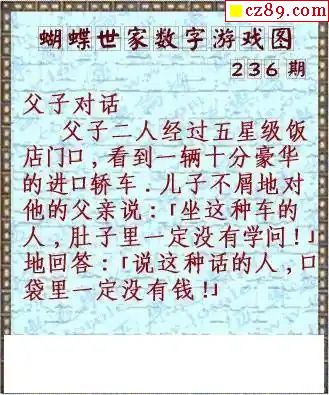 cz89.com
蝴蝶世家数字游戏图
236期
父子对话
父子二人经过五星级饭
店门口,看到一辆十分豪华
的进口轿车.儿子不屑地对
他的父亲说:「坐这种车的
人,肚子里一定没有学问!」
地回答:「说这种话的人,口
袋里一定没有钱!」